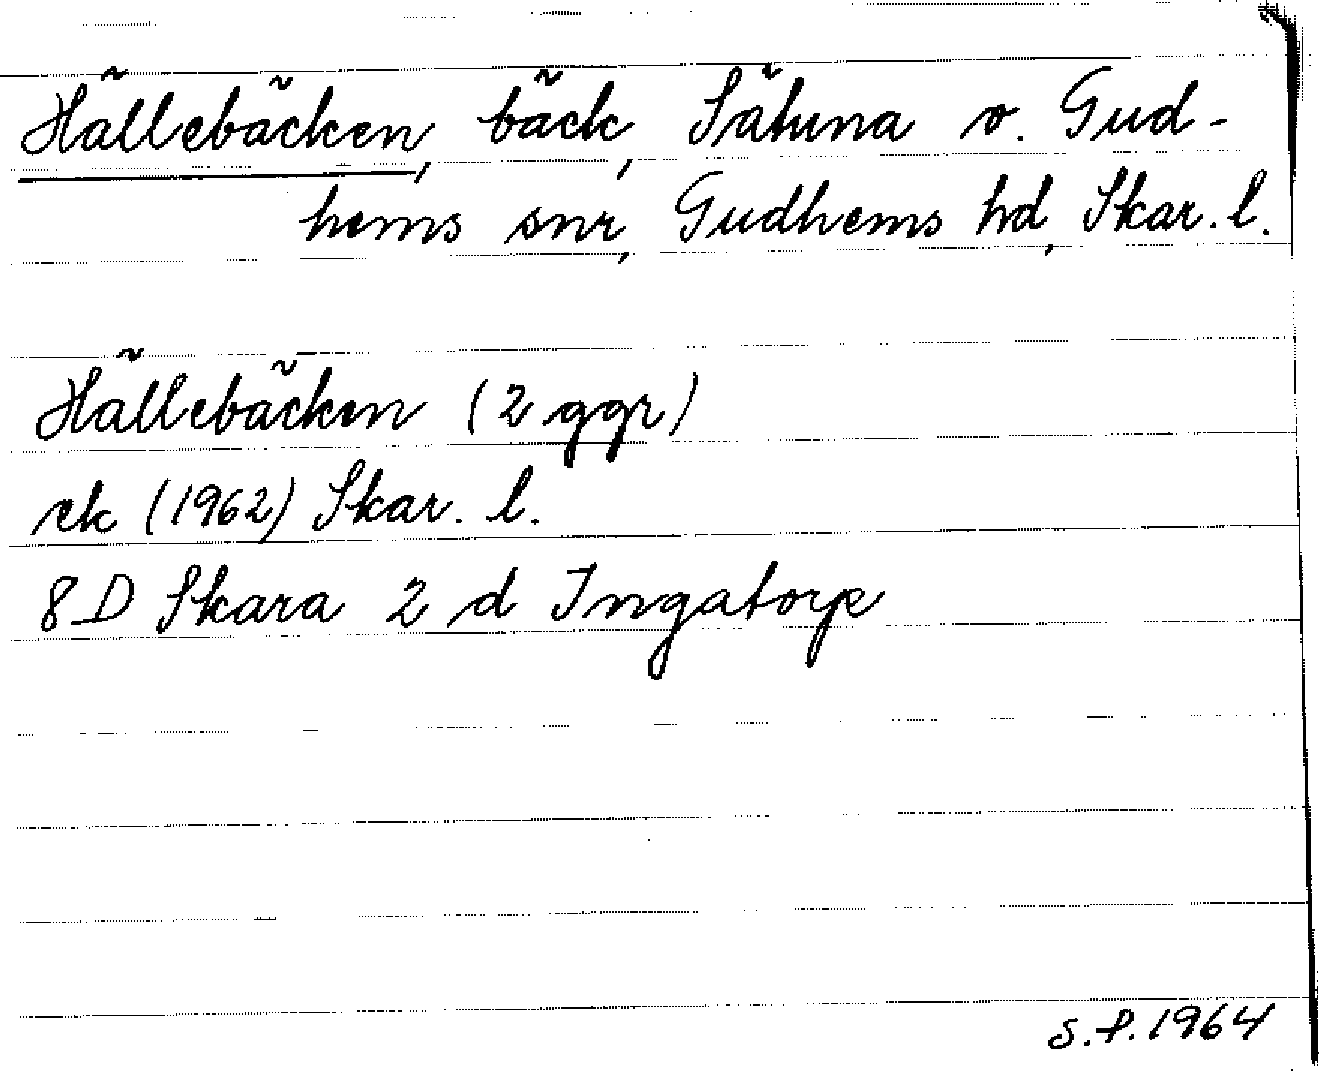 Hällebäcken, bäck, Sätuna o. Gud-
hems snr, Gudhems hd, Skar. l.
Hällebäcken (2 ggr)
ek (1962) Skar. l.
8 D Skara 2 d Ingatorp
S.P. 1964